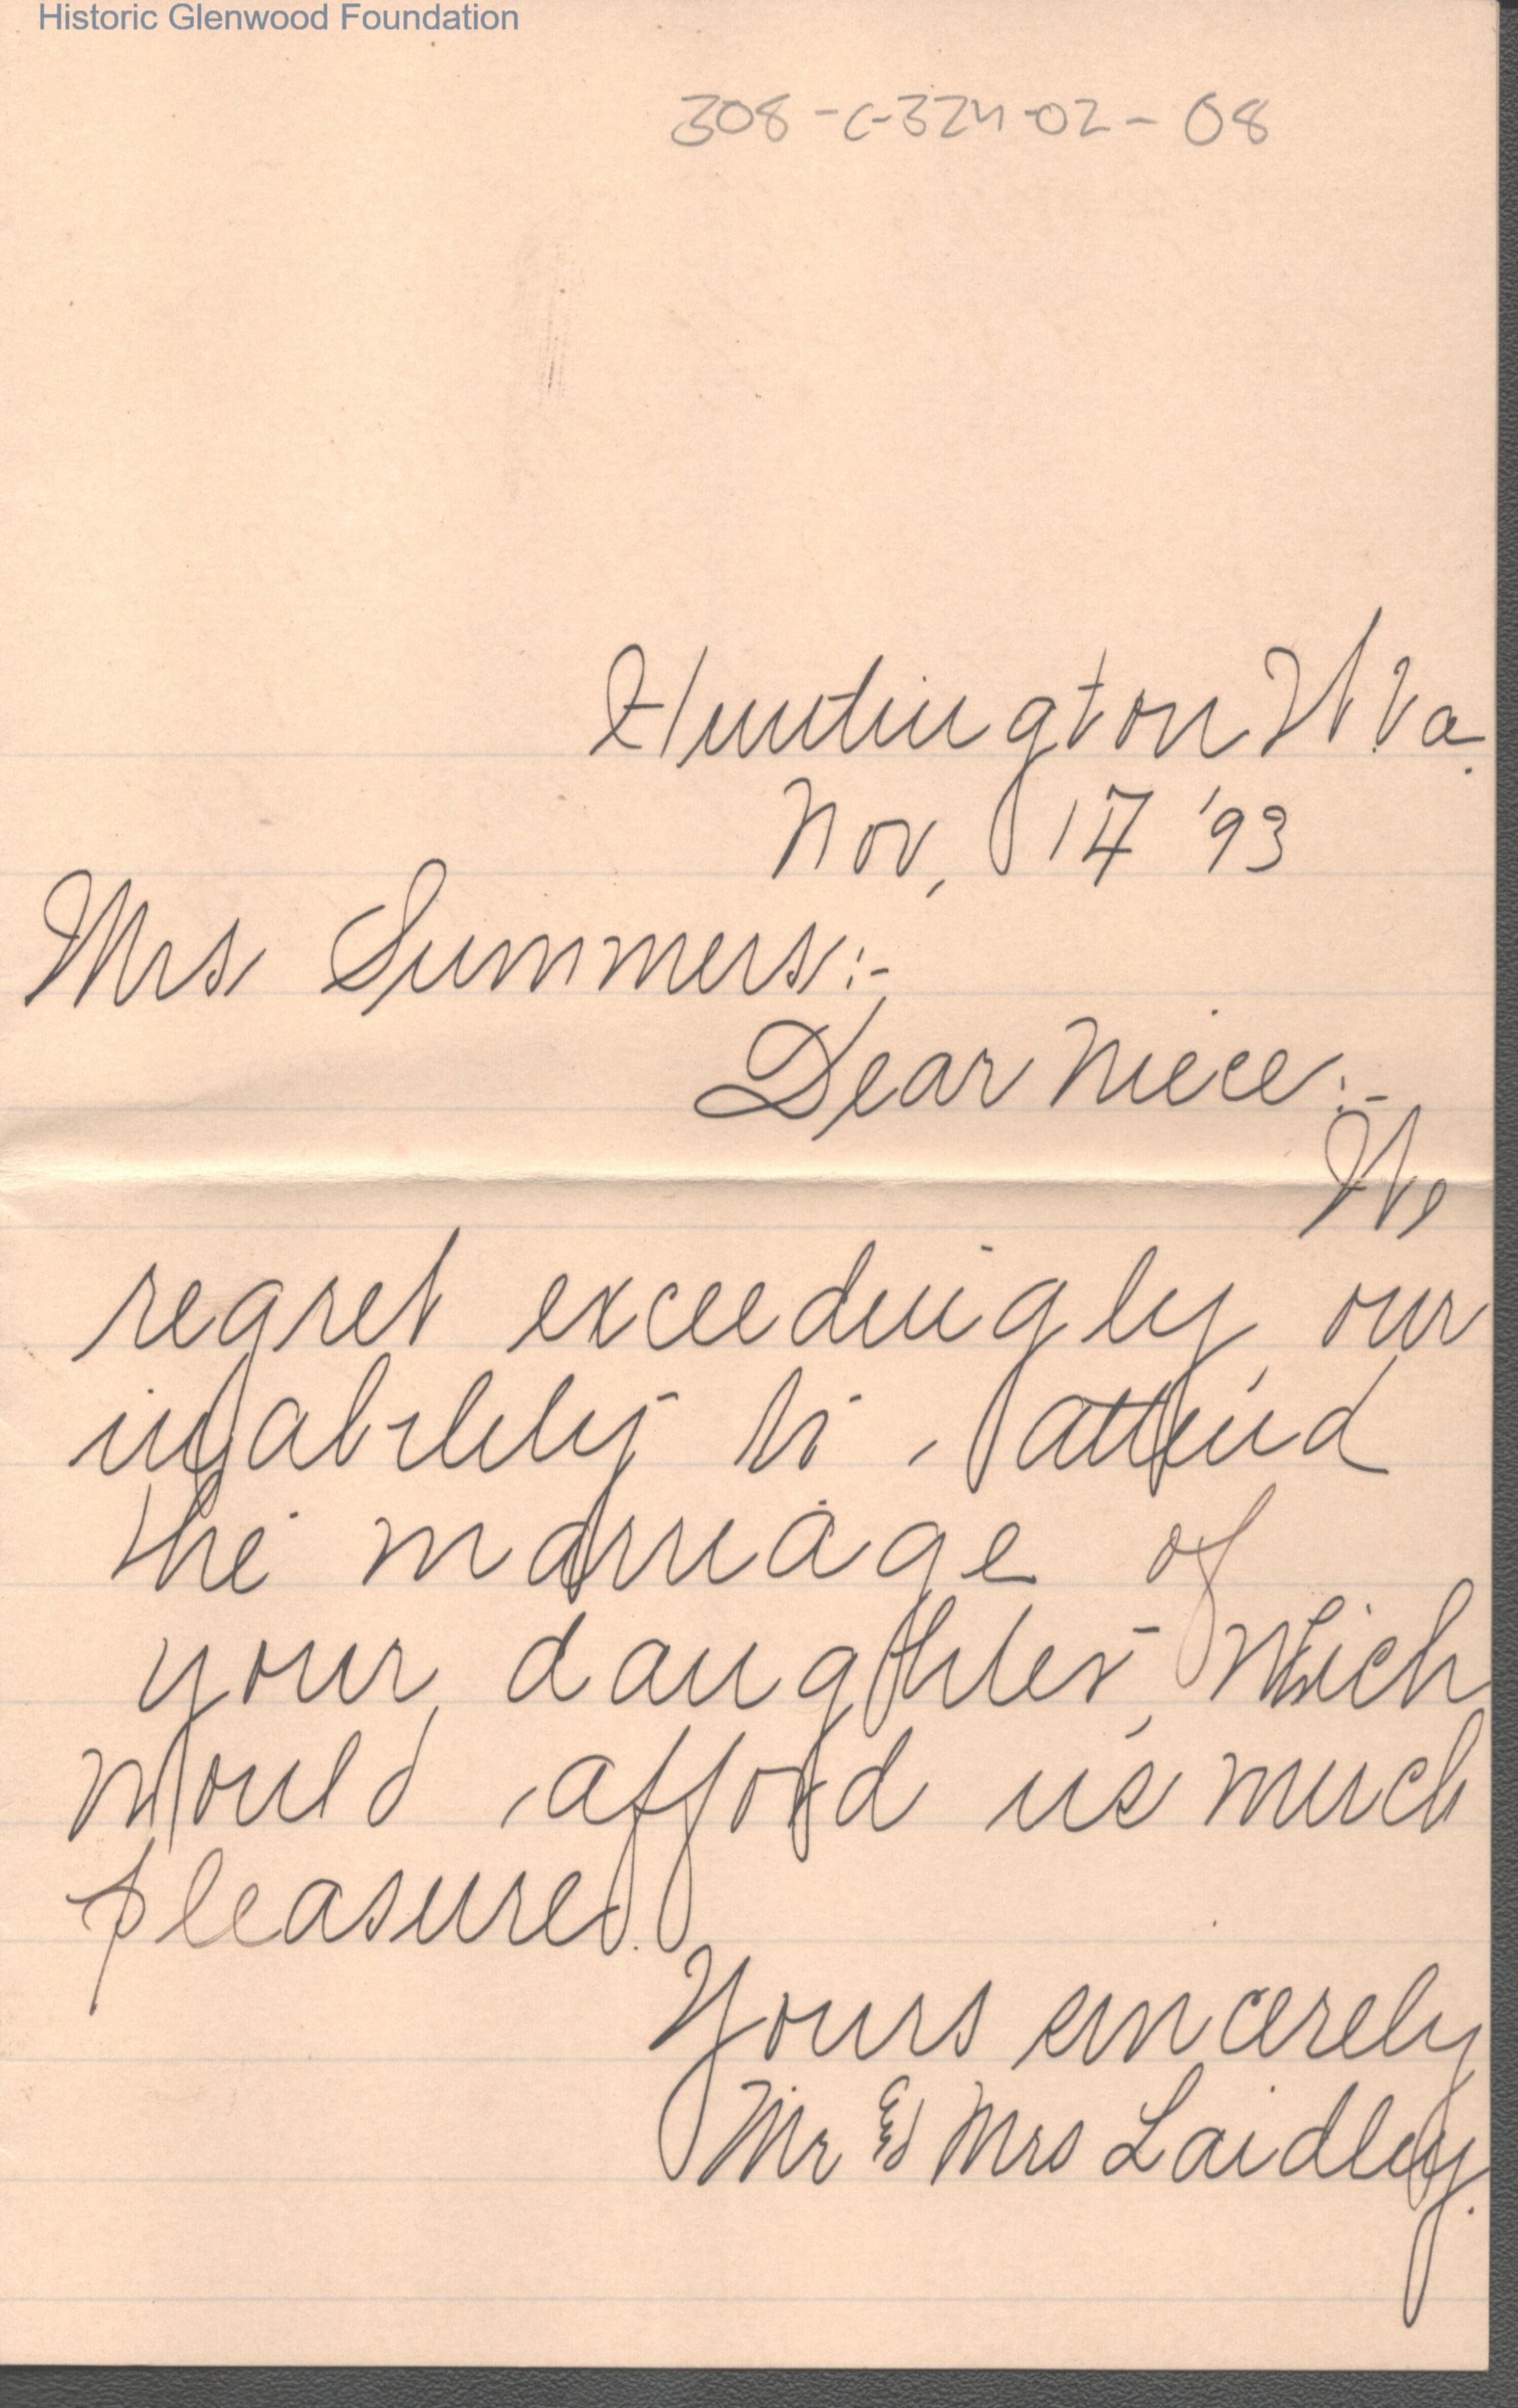 Historic Glenwood Foundation
308-C-324-02-08
Huntington W Va.
Nov, 17 '93
Mrs Summers:-
Dear Niece:-
We
regret exceedingly our
inability to attend
the marriage of
your daughter, which
would afford us much
pleasure.
Yours sincerely
Mr & Mrs Laidley.